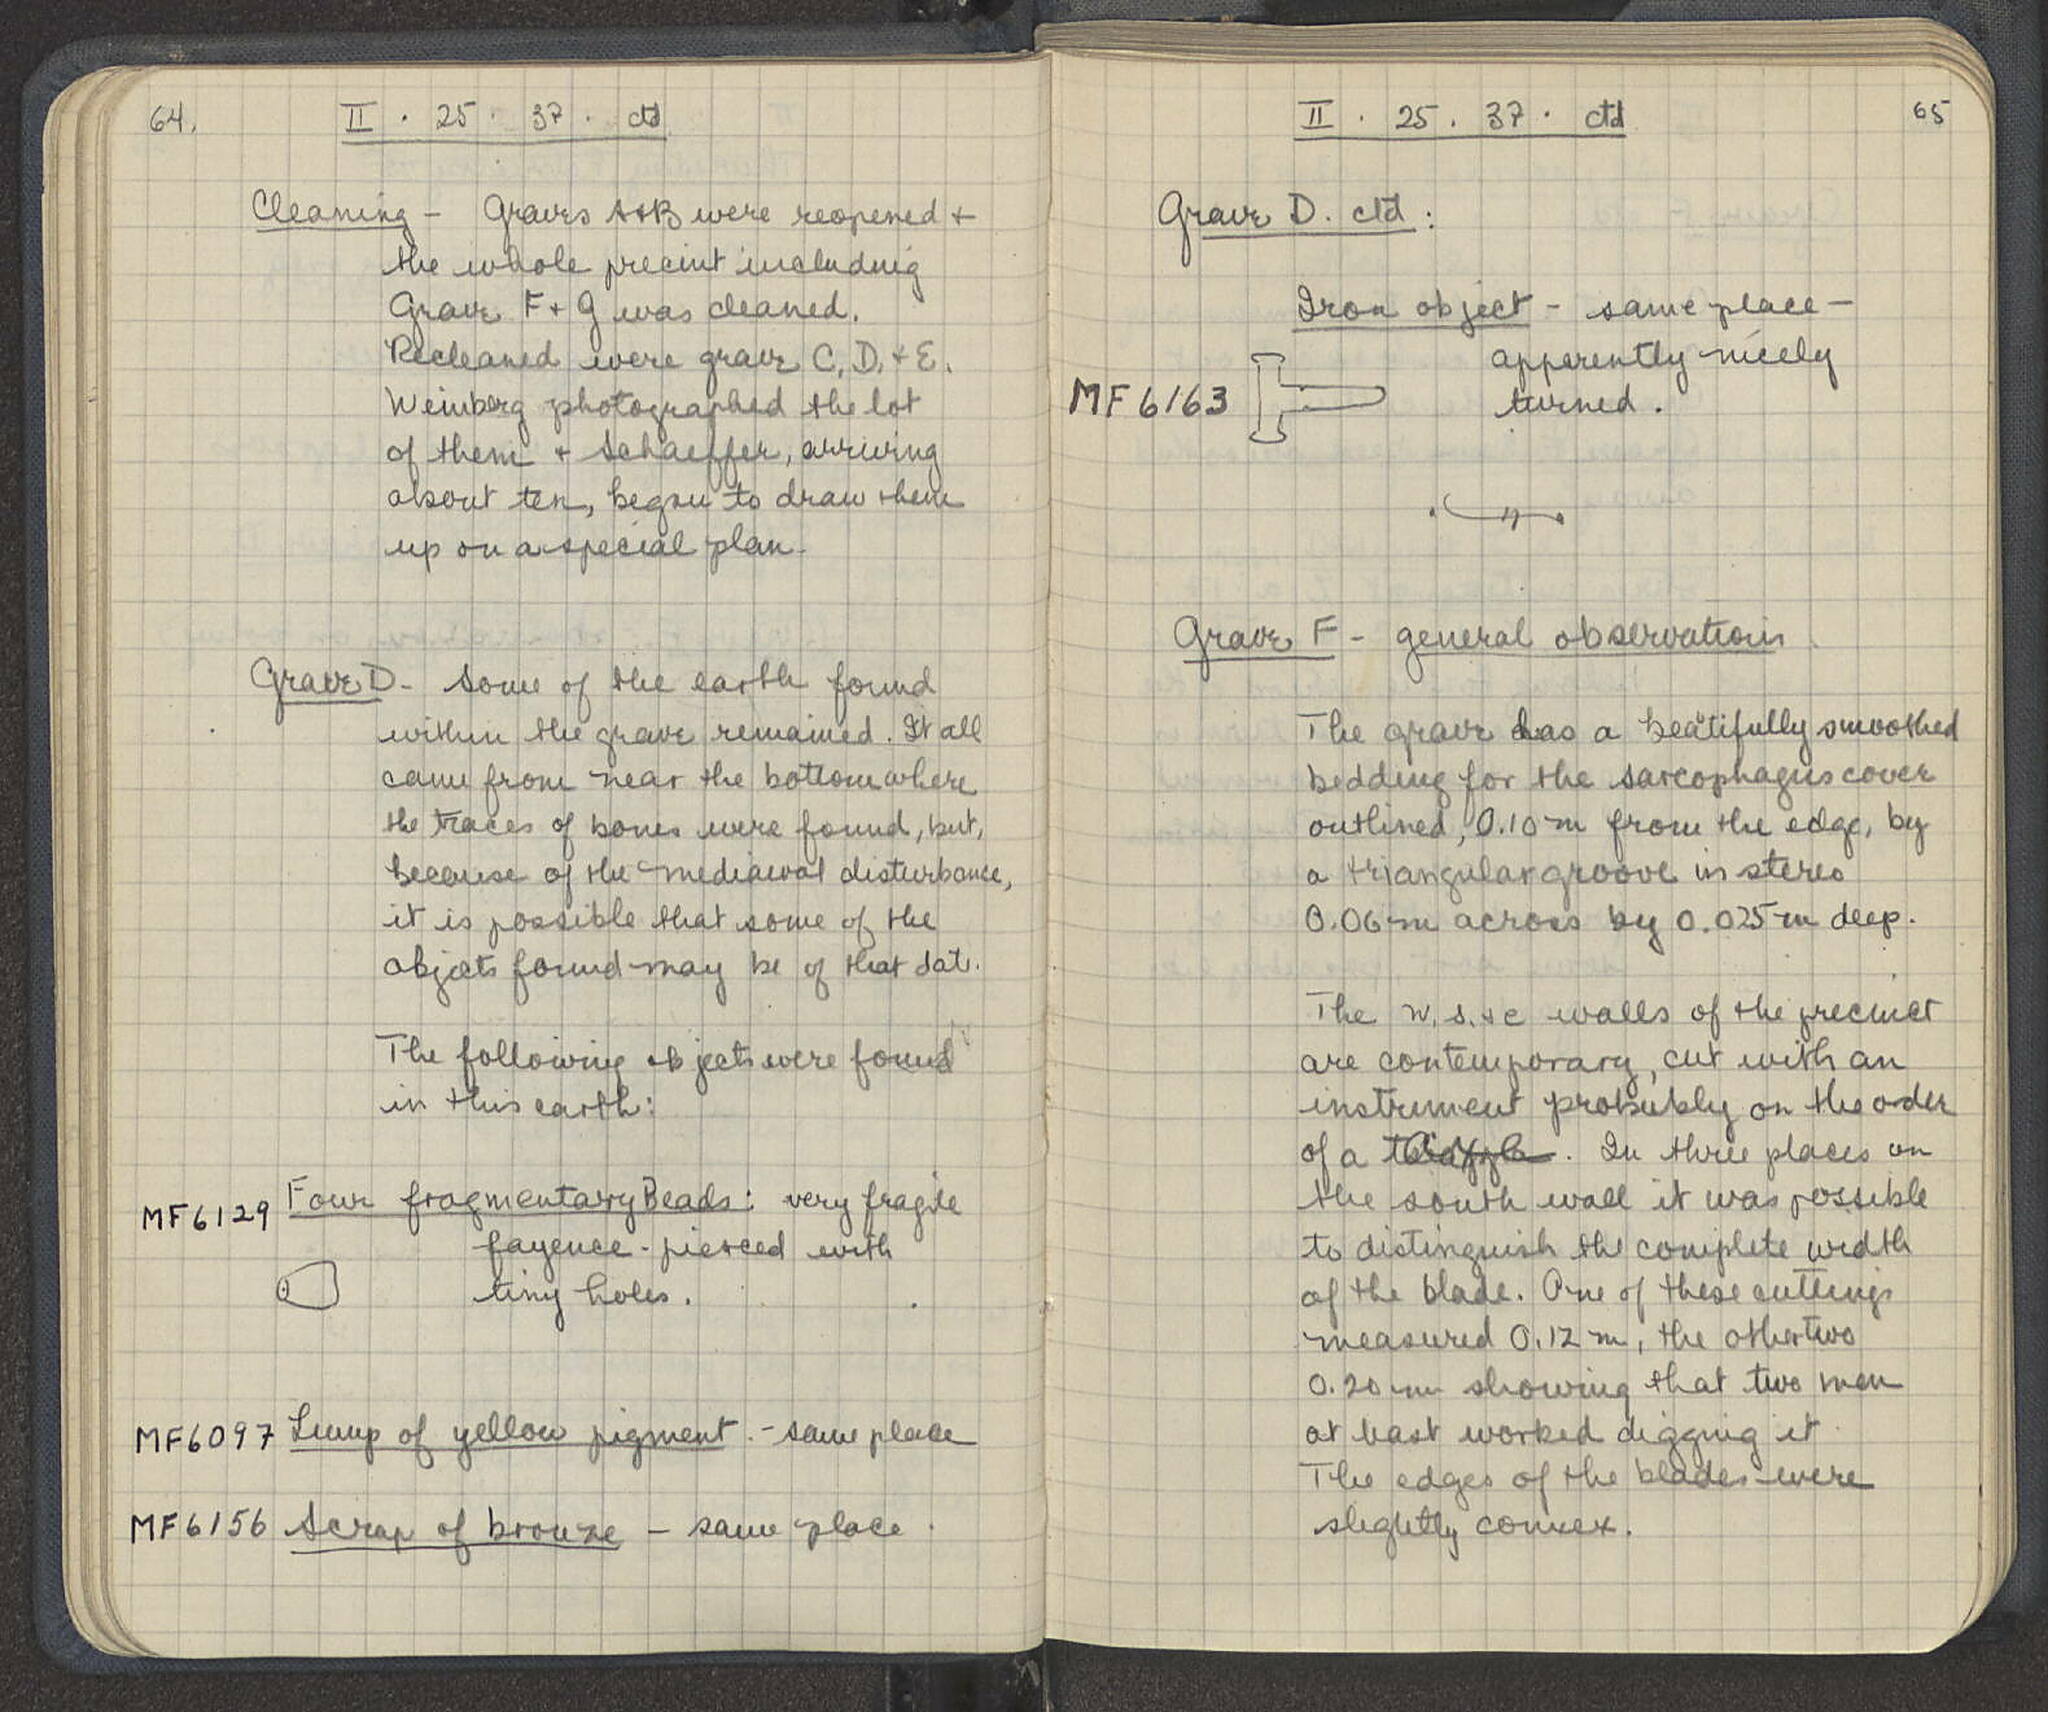 64.
II . 25 . 37 . ctd
Cleaning - Graves A+B were reopened +
the whole precint including
Grave F + G was cleaned.
Recleaned were grave C, D, + E.
Weinberg photographed the lot
of them + Schaeffer, arriving
about ten, began to draw them
up on a special plan.
Grave D - Some of the earth found
within the grave remained. It all
came from near the bottom where
the traces of bones were found, but,
because of the mediaeval disturbance,
it is possible that some of the
objects found may be of that date.
The following objects were found
in this earth:
MF6129 Four fragmentary Beads: very fragile
fayence - pierced with
tiny holes.
MF6097 Lump of yellow pigment. - same place
MF6156 Scrap of bronze - same place.
II . 25 . 37 . ctd
65
Grave D. ctd:
Iron object - same place -
apparently nicely
MF6163
turned.
Grave F - general observations
The grave has a beautifully smoothed
bedding for the sarcophagus cover
outlined, 0.10 m from the edge, by
a triangular groove in stereo
0.06 m across by 0.025 m deep.
The W. S. + E walls of the precinct
are contemporary, cut with an
instrument probably on the order
of a. In three places on
the south wall it was possible
to distinguish the complete width
of the blade. One of these cuttings
measured 0.12 m, the other two
0.20 m showing that two men
at least worked digging it.
The edges of the blades were
slightly convex.